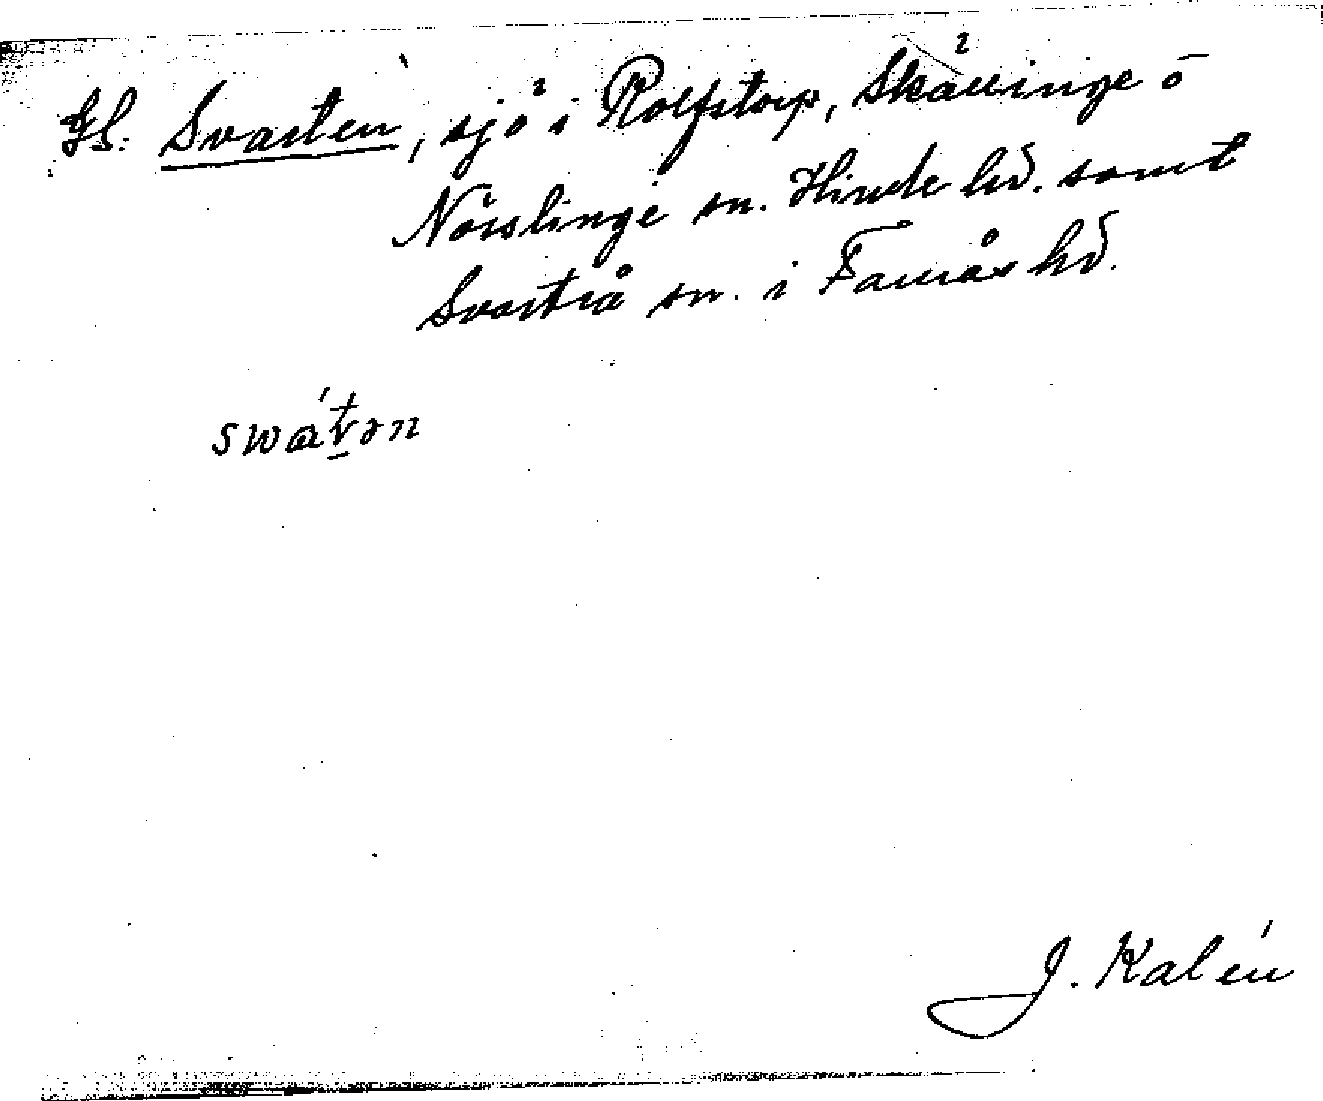 Hl. Svarten, sjö i Rolfstorp, Skällinge o
Nösslinge sn. Himle hd. samt
Svartrå sn. i Faurås hd.
swátən
J. Kalén